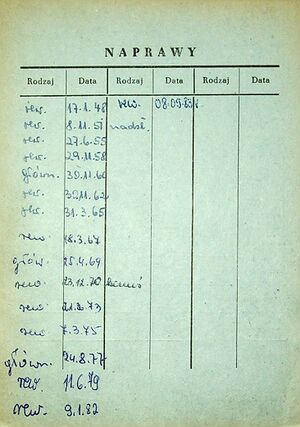 NAPRAWY
Rodzaj Data Rodzaj Data Rodzaj Data
rew. 17.1.48 rew. 08.09.83
rew. 8.11.51
rew. 27.6.55
rew. 29.11.58
główn. 30.11.60
rew. 30.11.62
rew. 31.3.65
rew. 18.3.67
główn. 25.4.69
rew. 23.12.70
rew. 21.2.73
rew. 7.3.75
główn. 24.8.77
rew. 11.6.79
rew. 9.1.82